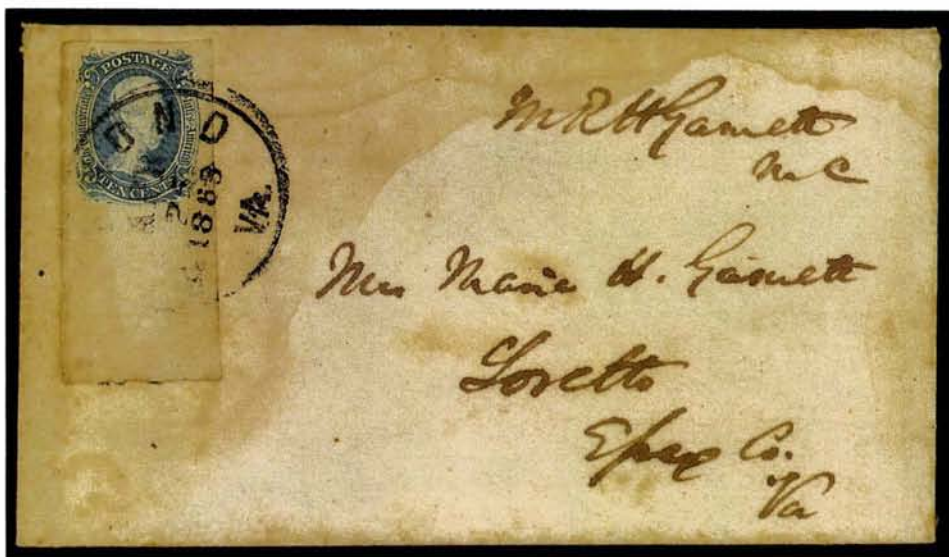 POSTAGE
TEN CENTS
OND
1863
VA.
M R H Garnett
M C
Mrs Maria H. Garnett
Loretto
Essex Co.
Va